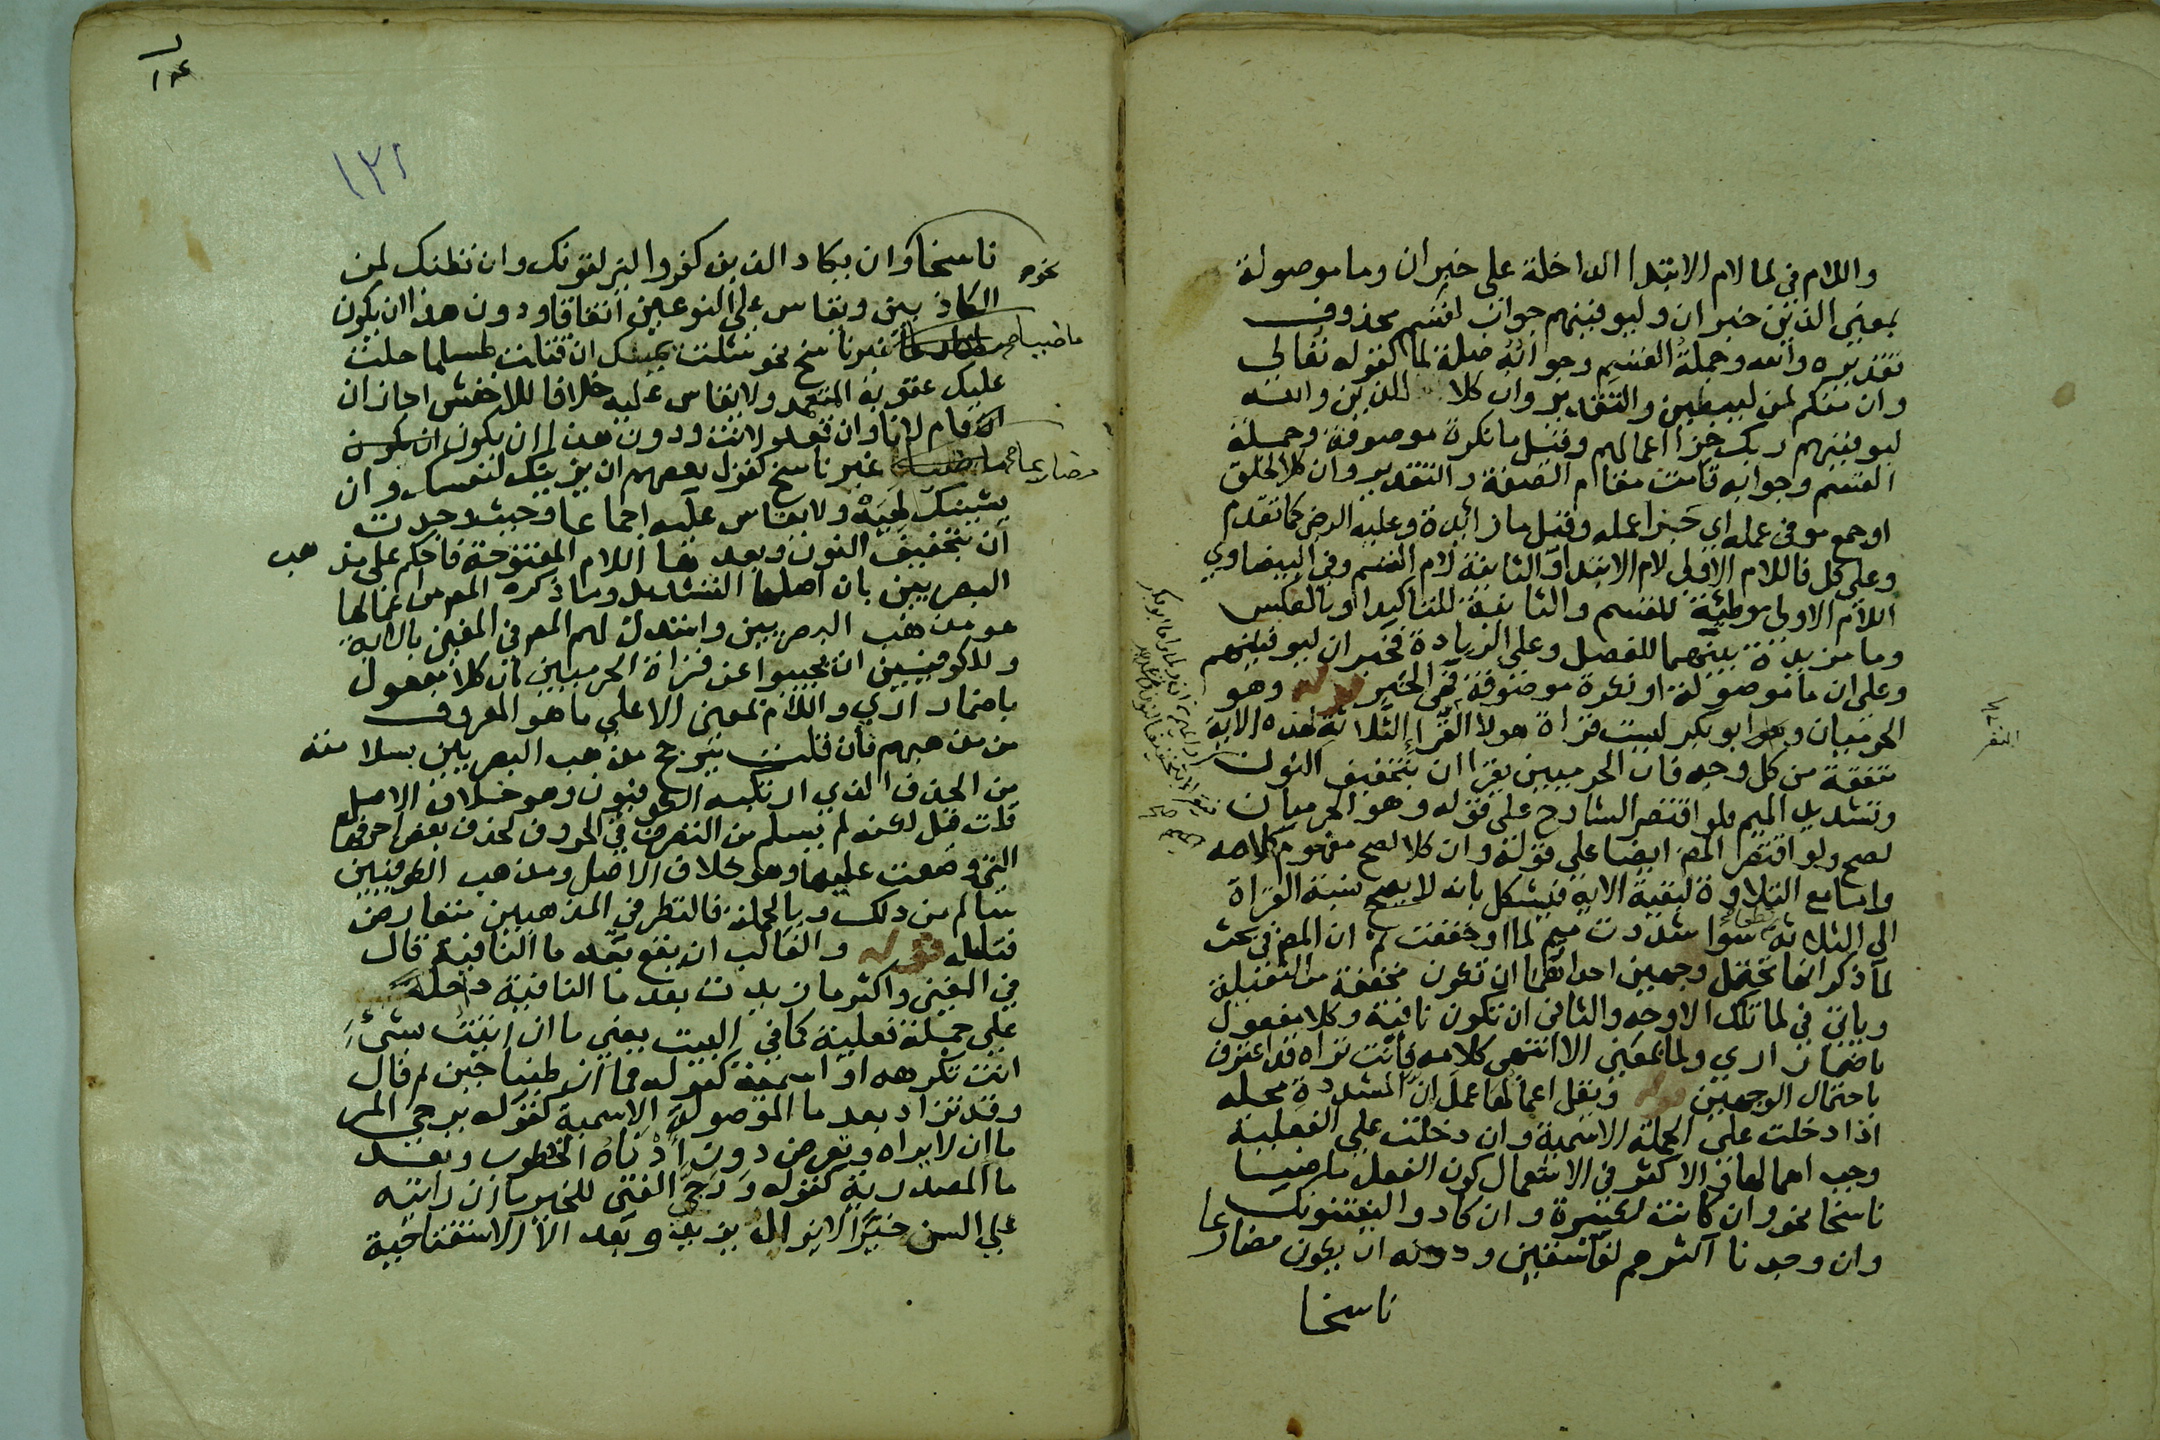 واللام في لما لام الابتدا الداخلة على خبر ان وما موصولة
بمعنى الذين خبر ان وليوفينهم جواب لقسم محذوف
تقديره والله وجملة القسم وجوابه صلة لما كقوله تعالى
وان منكم لمن ليبطين والتقدير وان كلا للذين والله
ليوفينهم ربك جزا اعمالهم وقيل ما نكرة موصوفة وجملة
القسم وجوابه قامت مقام الصفة والتقدير وان كلا لخلق
او جمع موفى عمله اي جزا عمله وقيل ما زائدة وعليه الرضى كما تقدم
وعلى كل فاللام الاولى لام الابتدا والثانية لام القسم وفي البيضاوي
اللام الاولى موطئة للقسم والثانية للتاكيد او بالعكس
وما مزيدة بينهما للفصل وعلى الزيادة فخبر ان ليوفينهم
وعلى ان ما موصولة او نكرة موصوفة فهى الخبر قوله وهو
الحرميان وابو بكر ليست قراة هولا القرا الثلاثة لهذه الاية
متفقة من كل وجه فان الحرميين يقرا ان بتخفيف النون
وتشديد الميم فلو اقتصر الشارح على قوله وهو الحرميان
لصح ولو اقتصر المص ايضا على قوله وان كلا لصح مفهوم كلامه
واما مع التلاوة لبقية الاية فيشكل بانه لا يصح نسبة القراة
الى الثلاثة سوا شددت ميم لما او خففت ثم ان المص في بحث
لما ذكر انها تحتمل وجهين احداهما ان تكون مخففة من الثقيلة
وياتى في لما تلك الاوجه والثانى ان تكون نافية وكلا مفعول
باضمار ارى ولما بمعنى الا انتهى كلامه فانت تراه قد اعترف
باحتمال الوجهين قوله ونقل اعمالها عمل ان المشددة محله
اذا دخلت على الجملة الاسمية وان دخلت على الفعلية
وجب اهمالها والاكثر في الاستعمال كون الفعل ماضيا
ناسخا نحو وان كانت لكبيرة وان كادوا ليفتنونك
وان وجدنا اكثرهم لفاسقين ودونه ان يكون مضارعا
ناسخا
١٣٢
ناسخا وان يكاد الذين كفروا ليزلقونك وان نظنك لمن
نحو
الكاذبين ويقاس على النوعين اتفاقا ودون هذا ان يكون
ماضيا غير ناسخ نحو شلت يمينك ان قتلت لمسلما حلت
عليك عقوبة المتعمد ولا يقاس عليه خلافا للاخفش اجاز ان
ان قام لانا وان قعد لانت ودون هذا ان يكون
مضارعا غير ناسخ كقول بعضهم ان يزينك لنفسك وان
يشينك لهيه ولا يقاس عليه اجماعا وحيث وجدت
ان بتخفيف النون وبعدها اللام المفتوحة فاحكم على مذهب
البصريين بان اصلها التشديد وما ذكره المص من اعمالها
هو مذهب البصريين واستدل لهم المص في المغنى بالاية
وللكوفيين ان يجيبوا عن قراة الحرميين بان كلا مفعول
باضمار ارى واللام بمعنى الا على ما هو المعروف
من مذهبهم فان قلت يترجح مذهب البصريين بسلامته
من الحذف الذي ارتكبه الكوفيون وهو خلاف الاصل
قلت قيل لكنه لم يسلم من التصرف في الحروف لحذف بعض احرفها
التى وضعت عليها وهو خلاف الاصل ومذهب الكوفيين
سالم من ذلك وبالجملة فالنظر في المذهبين متعارض
فتامله قوله والغالب ان يقع بعد ما النافية قال
في المغنى واكثر ما زيدت بعد ما النافية داخلة
على جملة فعلية كما في البيت يعنى ما ان اتيت بشئ
انت تكرهه او اسمية كقوله فما ان طبنا جبن ثم قال
وقد تزاد بعد ما الموصولة الاسمية كقوله يرجى المر
ما ان لا يراه وتعرض دون ادناه الخطوب وبعد
ما المصدرية كقوله ورج الفتى للخير ما ان رايته
على السن خيرا لا يزال يزيد وبعد الا الاستفتاحية